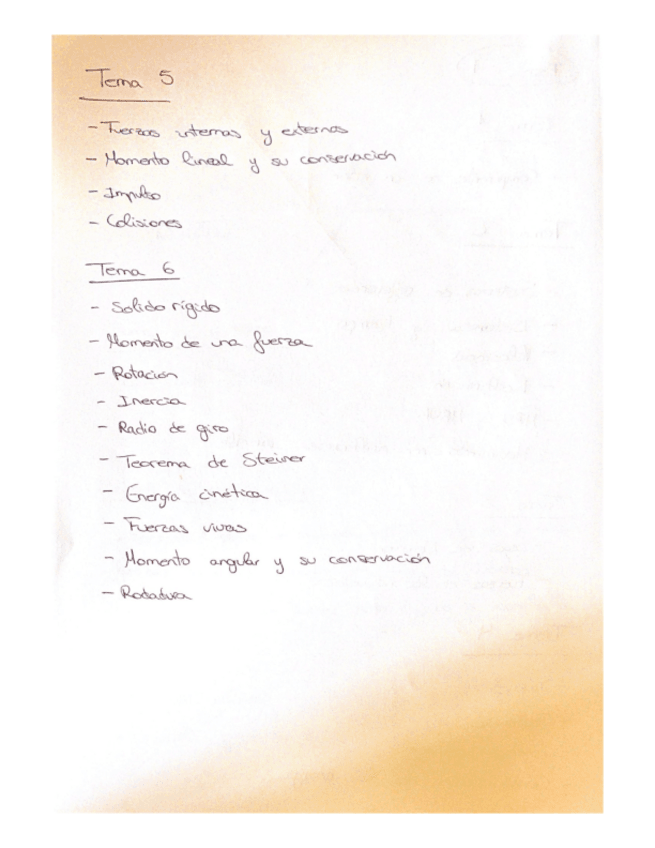 Tema 5
- Fuerzas internas y externas
- Momento lineal y su conservación
- Impulso
- Colisiones
Tema 6
- Solido rígido
- Momento de una fuerza
- Rotacion
- Inercia
- Radio de giro
- Teorema de Steiner
- Energía cinética
- Fuerzas vivas
- Momento angular y su conservación
- Rodadura